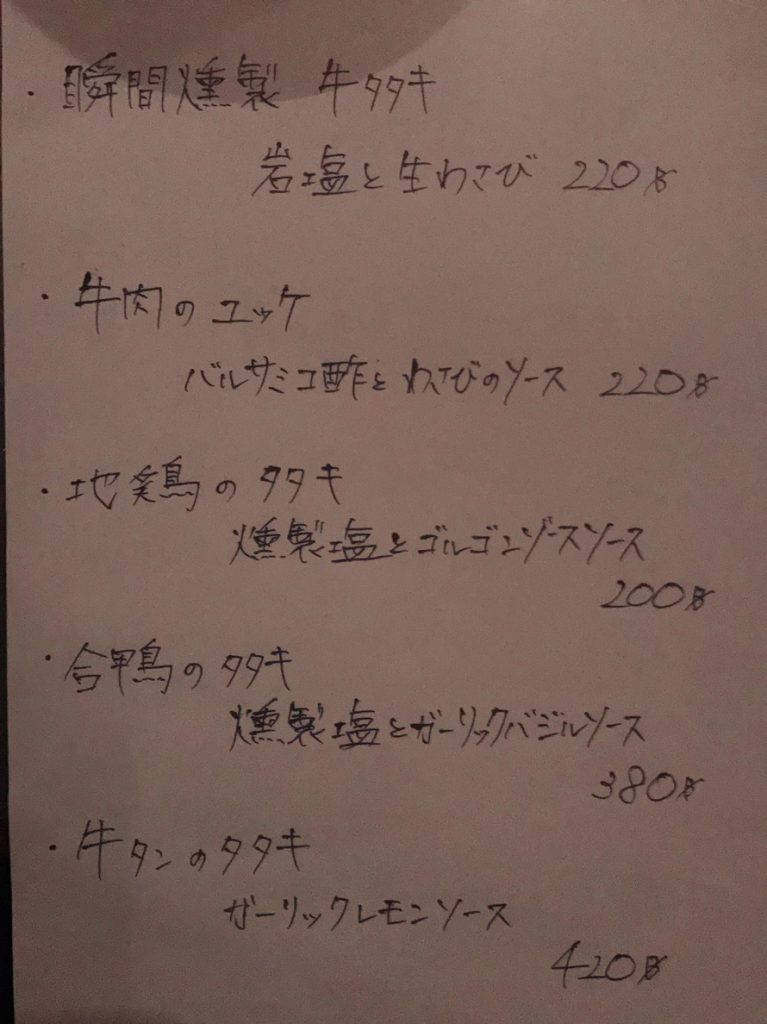 ・瞬間燻製 牛タタキ
岩塩と生わさび 220฿
・牛肉のユッケ
バルサミコ酢とわさびのソース 220฿
・地鶏のタタキ
燻製塩とゴルゴンゾースソース
200฿
・合鴨のタタキ
燻製塩とガーリックバジルソース
380฿
・牛タンのタタキ
ガーリックレモンソース
420฿